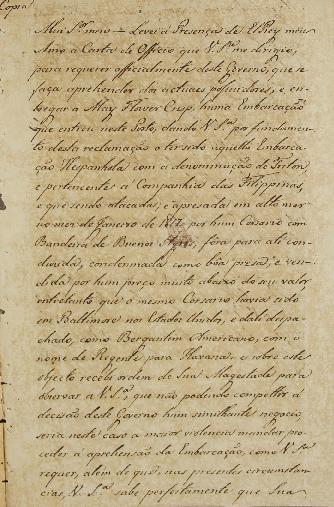 Copia
Muu Snr. meu = Levei á Presença de ElRey meu
Amo a Carta de Officio que V. Sa. me dirigio,
para requerer officialmente deste Governo, que se
faça aprehender dos actuaes possuidores, e en-
tregar a Muy Flaver Cusp. huma Embarcação
que entrou neste Porto, dando V. Sa. por fundamen-
to desta reclamação o ter sido aquella Embarca-
ção Hespanhola com a denominação de Triton,
e pertencente á Companhia das Filippinas,
e que sendo atacada, e apresada em alto mar
no mez de Janeiro de 1817, por hum Corsario com
Bandeira de Buenos Ayres, fôra para alí con-
duzida, condemnada como bôa presa, e ven-
dida por hum preço muito abaixo do seu valor
entretanto que o mesmo Corsario havia sido
em Baltimore nos Estados Unidos, e dali despa-
chado, como Bergantim Americano, com o
nome de Regente para Havana: e sobre este
objecto recebi ordem de Sua Magestade para
observar a V. Sa. que não podendo competir á
decisão deste Governo hum similhante negocio,
seria neste caso a maior violencia mandar pro-
ceder á aprehensão da Embarcação, como V. Sa.
requer, alem de que, nas presentes circumstan-
cias, V. Sa. sabe perfeitamente que Sua